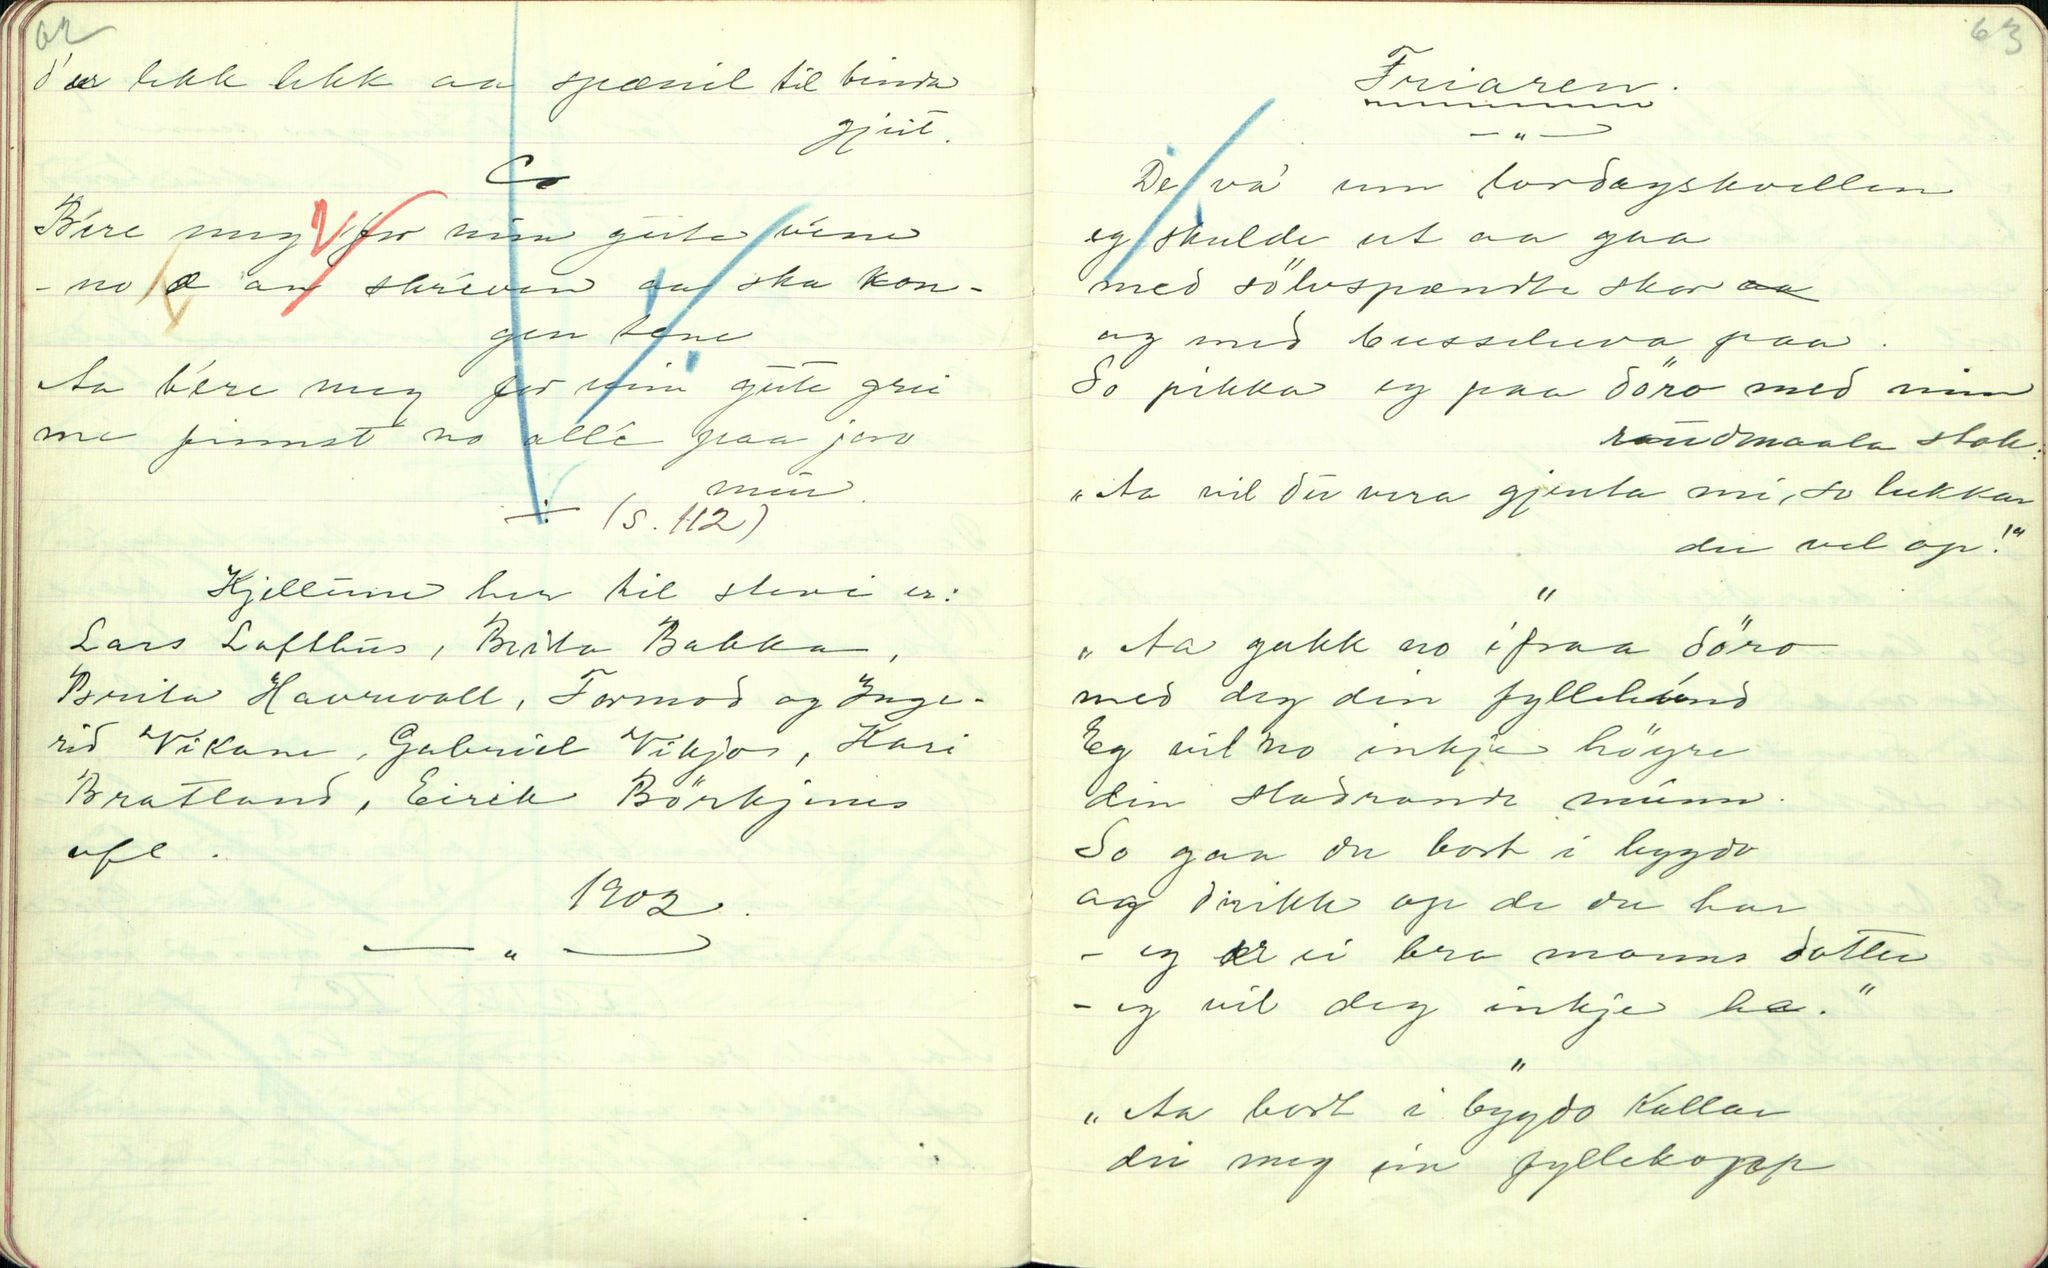 62
d'er lekk lekk aa spænil til binda
gjut.
Co
Bére meg for min gúte véne
- no æ an skréven aa ska kon-
gen tene
Aa bére meg for min gúte grei
me finnst no allé paa jor
mei
÷ (s. 112)
Kjellune her til stevi er:
Lars Lofthus, Brita Bakka,
Brita Havrevoll, Tormod og Inge-
rid Vikane, Gabriel Vikjor, Kari
Bratland, Eirik Börkjenes
ofl.
1902.
— „ —
63
Friaren.
— „ —
De va' um lordagskvellen
eg skulde ut aa gaa
med sölvspændte skor
og med busseluva paa.
So pikka eg paa döro med min
raudmaala stok:
„Aa vil du vera gjenta mi, so lukkar
du vel op!"
"
„Aa gakk no ifraa döro
med deg din fyllehund
Eg vil no inkje höyre
din sladrande munn.
So gaa du bort i bygdo
og drikk op de du har
- eg er ei bra manns dotter
- eg vil deg inkje ha."
"
„Aa bort i bygdo kallar
du meg ein fyllekopp